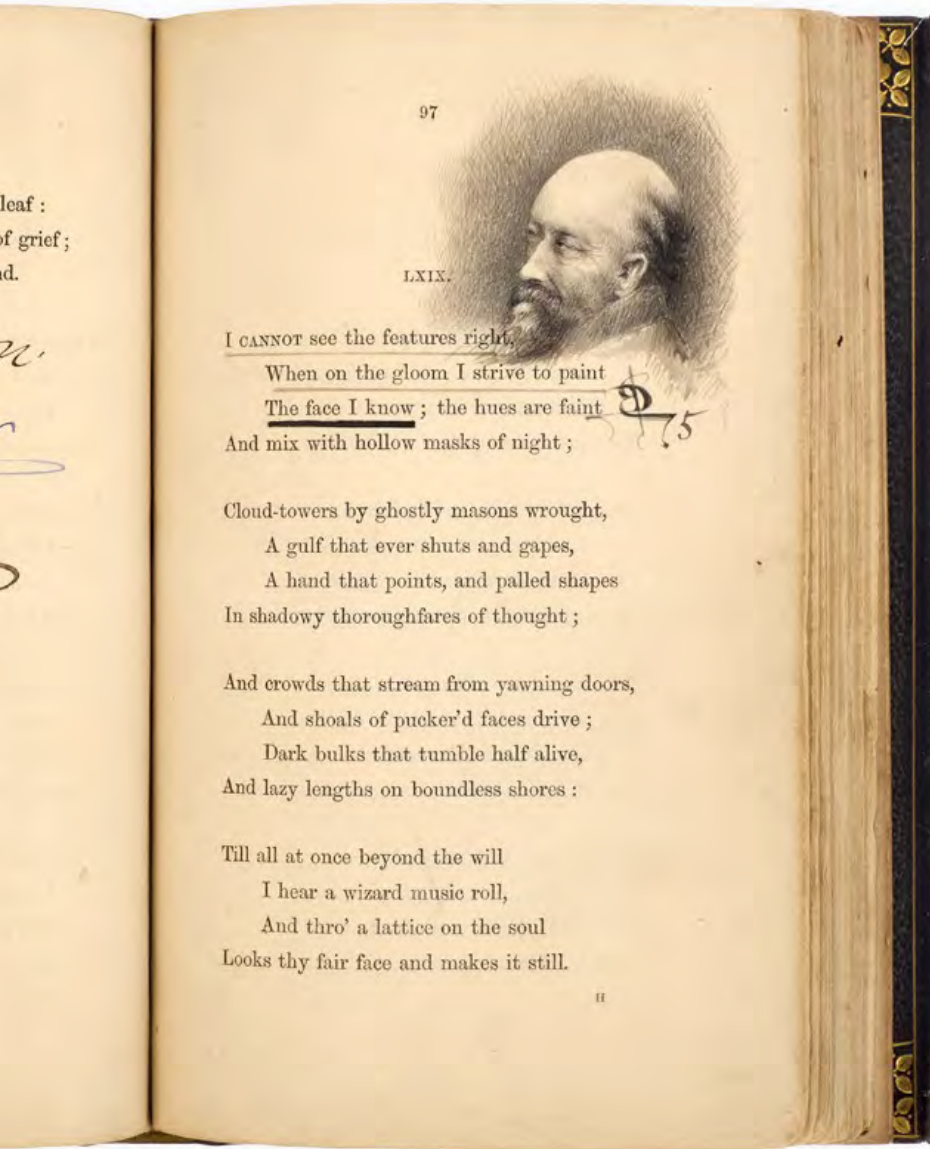 leaf :
of grief ;
nd.
97
LXIX.
I CANNOT see the features right,
When on the gloom I strive to paint
The face I know ; the hues are faint
And mix with hollow masks of night ;
Cloud-towers by ghostly masons wrought,
A gulf that ever shuts and gapes,
A hand that points, and palled shapes
In shadowy thoroughfares of thought ;
And crowds that stream from yawning doors,
And shoals of pucker'd faces drive ;
Dark bulks that tumble half alive,
And lazy lengths on boundless shores :
Till all at once beyond the will
I hear a wizard music roll,
And thro' a lattice on the soul
Looks thy fair face and makes it still.
H